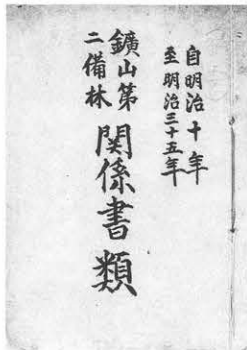 自明治十年
至明治三十五年
鑛山第
二備林
関係書類